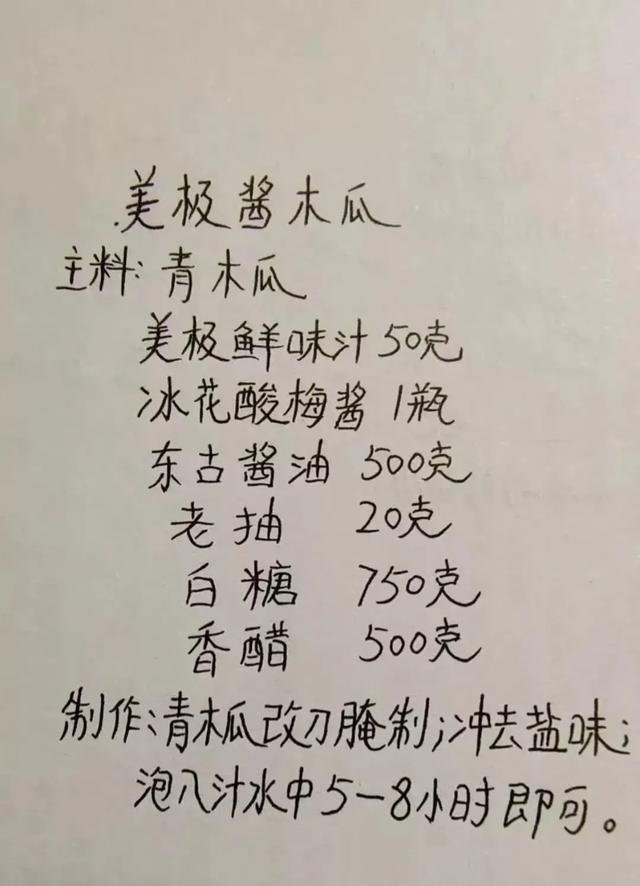 美极酱木瓜
主料:青木瓜
美极鲜味汁50克
冰花酸梅酱 1瓶
东古酱油 500克
老抽 20克
白糖 750克
香醋 500克
制作:青木瓜改刀腌制;冲去盐味;
泡入汁水中5-8小时即可。